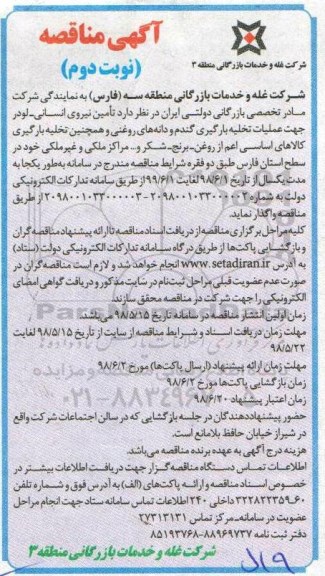 آگهی مناقصه
(نوبت دوم)
شرکت غله و خدمات بازرگانی منطقه ۳
شرکت غله و خدمات بازرگانی منطقه سه (فارس) به نمایندگی شرکت
مادر تخصصی بازرگانی دولتی ایران در نظر دارد تأمین نیروی انسانی-لودر
جهت عملیات تخلیه بارگیری گندم و دانه‌های روغنی و همچنین تخلیه بارگیری
کالاهای اساسی اعم از روغن-برنج-شکر و.. مراکز ملکی و غیرملکی خود در
سطح استان فارس طبق دو فقره شرایط مناقصه مندرج در سامانه به‌طور یکجا به
مدت یکسال از تاریخ ۹۸/۶/۱ لغایت ۹۹/۶/۱ از طریق سامانه تدارکات الکترونیکی
دولت به شماره ۲۰۹۸۰۰۱۰۳۳۰۰۰۰۰۲ - ۲۰۹۸۰۰۱۰۳۳۰۰۰۰۰۳ از طریق
مناقصه واگذار نماید.
کلیه مراحل برگزاری مناقصه از دریافت اسناد مناقصه تا ارائه پیشنهاد مناقصه‌گران
و بازگشایی پاکت‌ها از طریق درگاه سامانه تدارکات الکترونیکی دولت (ستاد)
به آدرس www.setadiran.ir انجام خواهد شد و لازم است مناقصه‌گران در
صورت عدم عضویت قبلی مراحل ثبت‌نام در سایت مذکور و دریافت گواهی امضای
الکترونیکی را جهت شرکت در مناقصه محقق سازند.
زمان اولین انتشار مناقصه در سامانه تاریخ ۹۸/۵/۱۵ می‌باشد
مهلت زمان دریافت اسناد و شرایط مناقصه از سایت از تاریخ ۹۸/۵/۱۵ لغایت
۹۸/۵/۲۲
مهلت زمان ارائه پیشنهاد (ارسال پاکت‌ها) مورخ ۹۸/۶/۲
زمان بازگشایی پاکت‌ها مورخ ۹۸/۶/۲
زمان اعتبار پیشنهاد ۹۸/۶/۲۰
حضور پیشنهاددهندگان در جلسه بازگشایی که در سالن اجتماعات شرکت واقع
در شیراز خیابان حافظ بلامانع است.
هزینه درج آگهی به عهده برنده مناقصه می‌باشد.
اطلاعات تماس دستگاه مناقصه‌گزار جهت دریافت اطلاعات بیشتر در
خصوص اسناد مناقصه و ارائه پاکت‌های (الف) به آدرس فوق و شماره تلفن
۳۲۲۸۲۳۵۹-۶۰ داخلی ۲۴۰ اطلاعات تماس سامانه ستاد جهت انجام مراحل
عضویت در سامانه-مرکز تماس ۲۷۳۱۳۱۳۱
دفتر ثبت نامه ۸۸۹۶۹۷۳۷-۸۵۱۹۳۷۶۸
شرکت غله و خدمات بازرگانی منطقه ۳